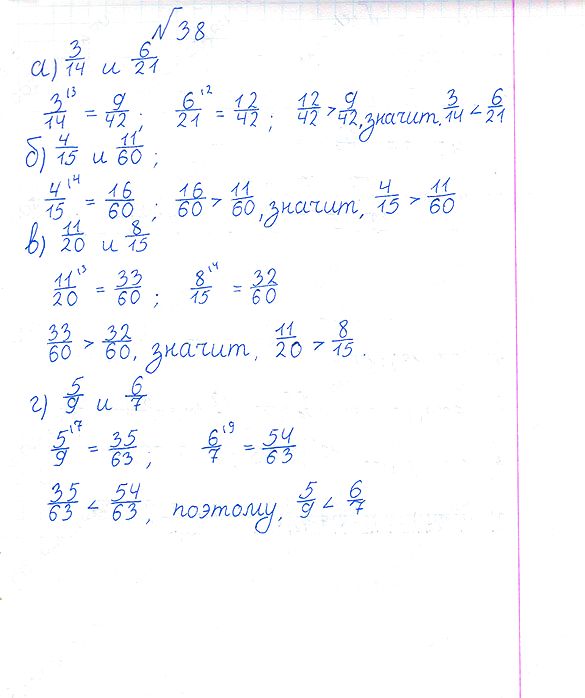 №38
а) 3/14 и 6/21
3/14 ⁽³ = 9/42; 6/21 ⁽² = 12/42; 12/42 > 9/42, значит, 3/14 < 6/21
б) 4/15 и 11/60;
4/15 ⁽⁴ = 16/60; 16/60 > 11/60, значит, 4/15 > 11/60
в) 11/20 и 8/15
11/20 ⁽³ = 33/60; 8/15 ⁽⁴ = 32/60
33/60 > 32/60, значит, 11/20 > 8/15.
г) 5/9 и 6/7
5/9 ⁽⁷ = 35/63; 6/7 ⁽⁹ = 54/63
35/63 < 54/63, поэтому, 5/9 < 6/7